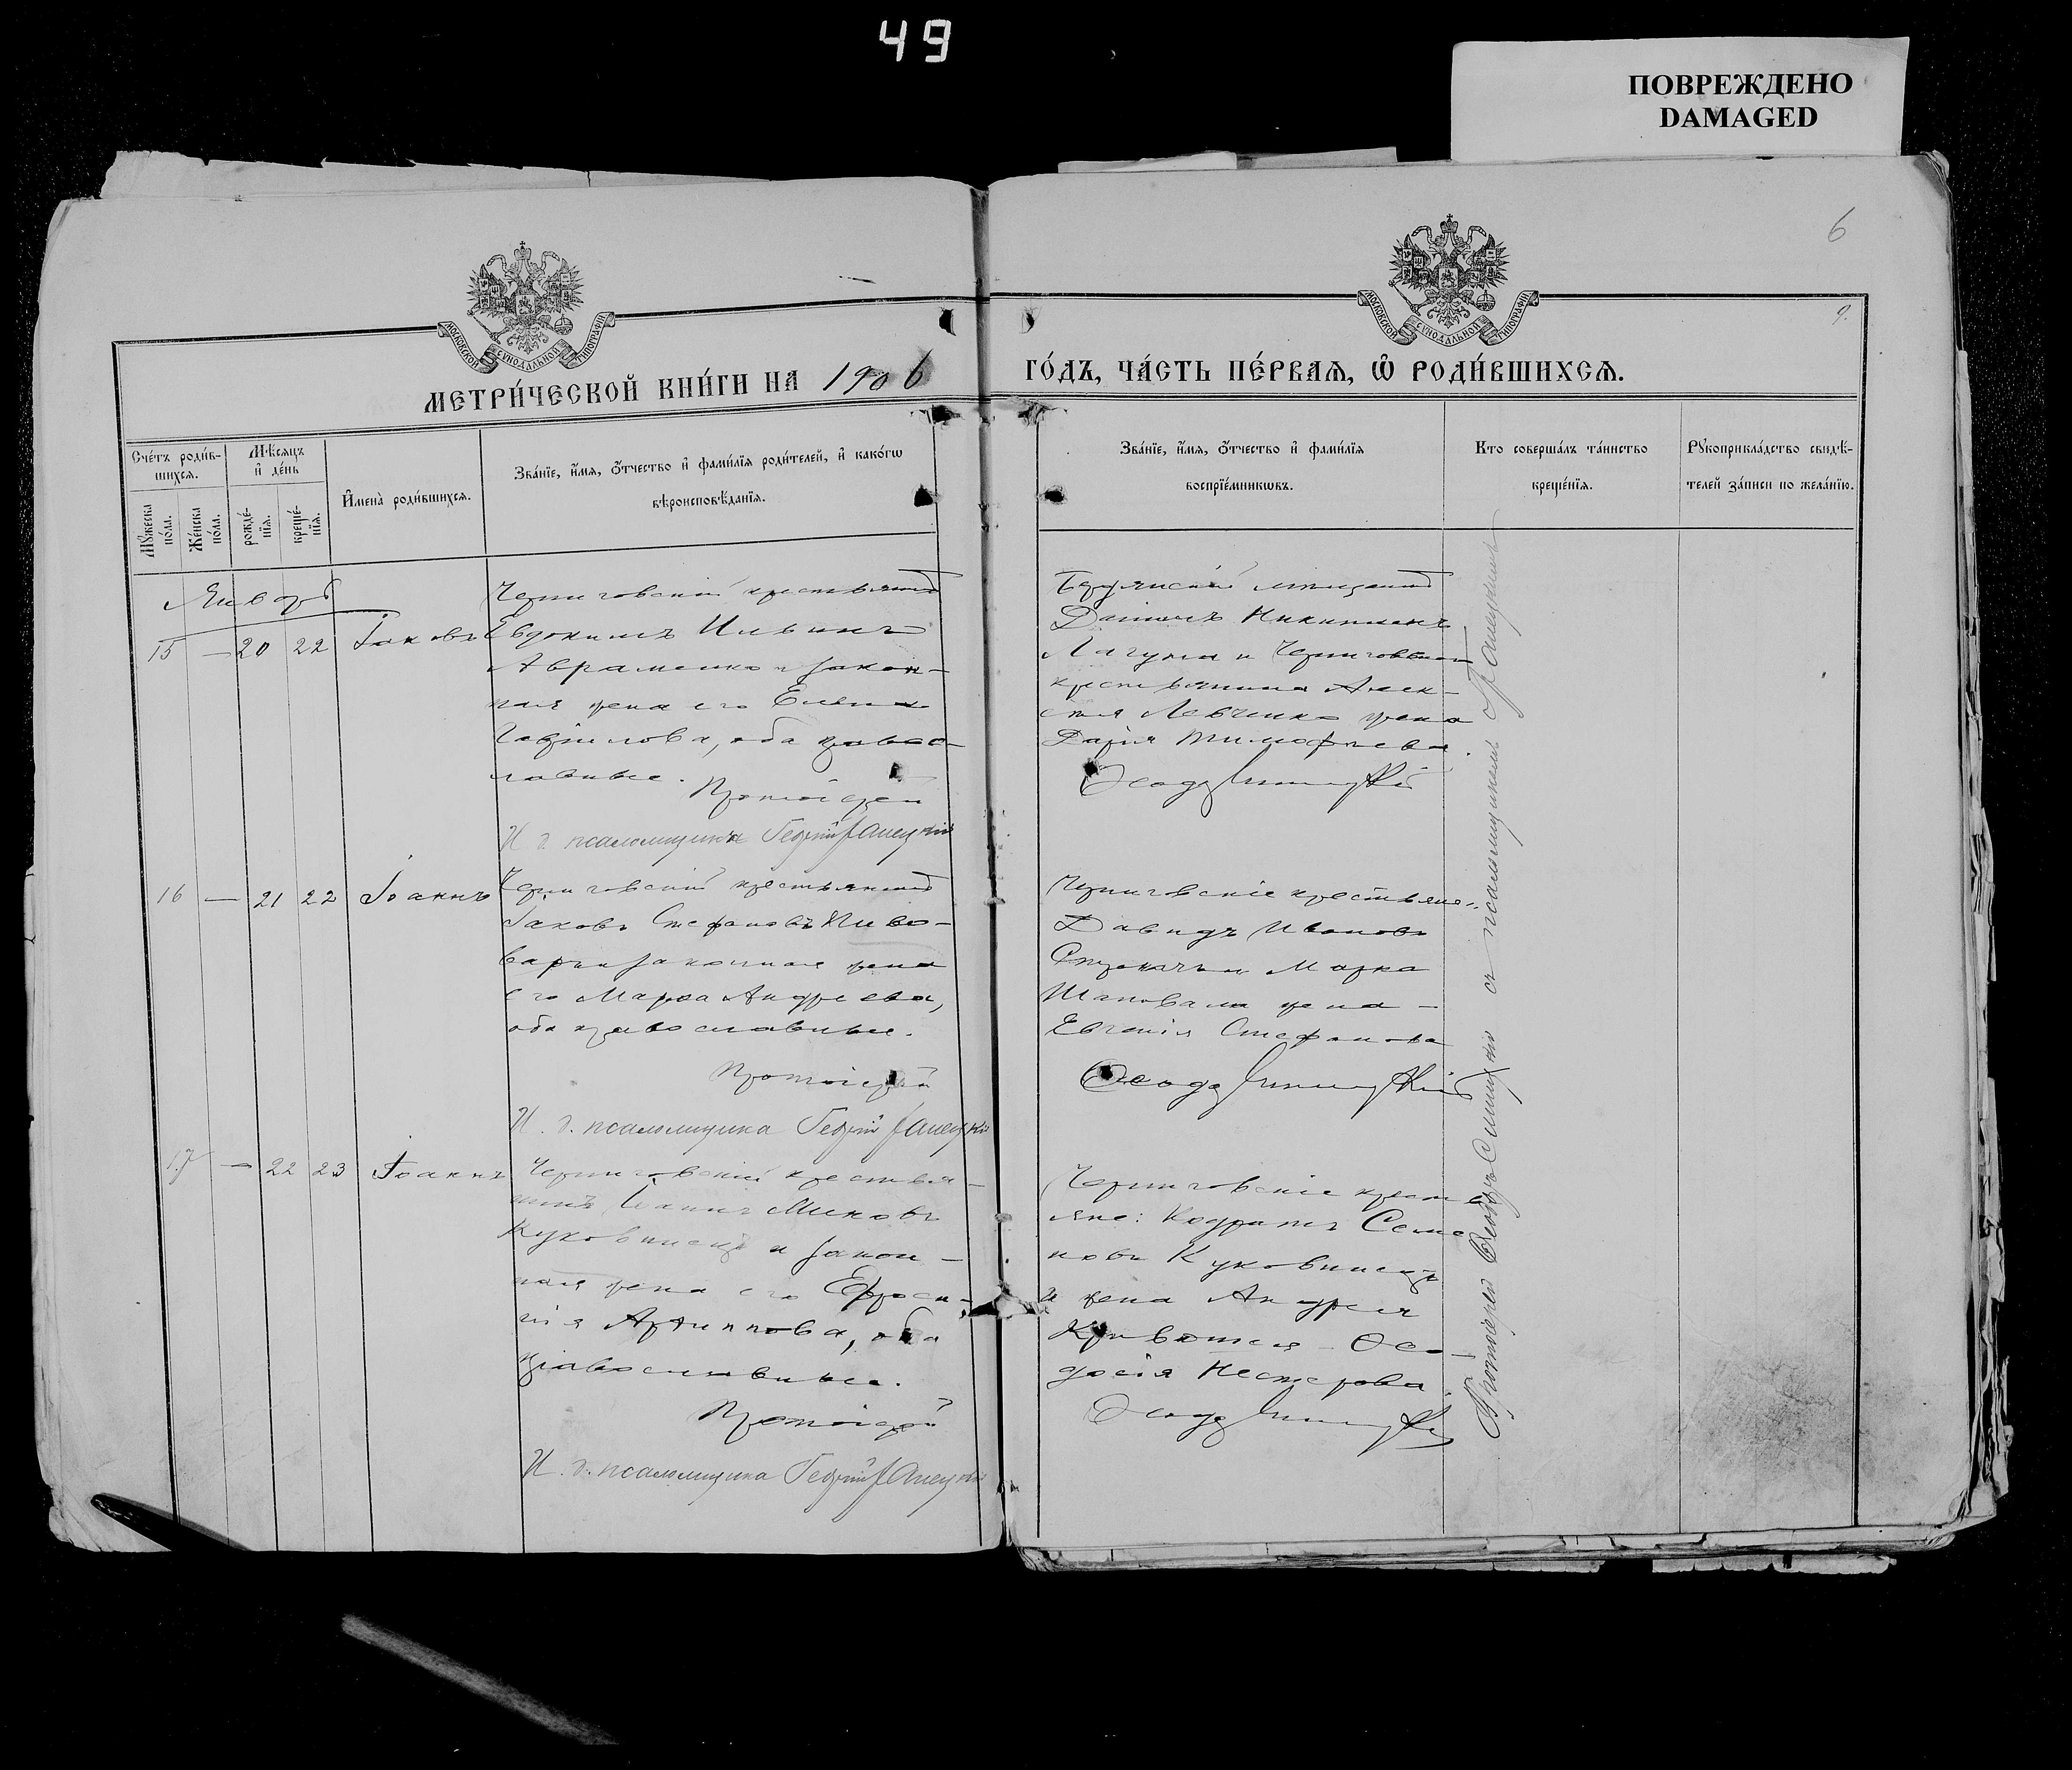 49
ПОВРЕЖДЕНО
DAMAGED
6
9.
МОСКОВСКОЙ СУНОДАЛЬНОЙ ТИПОГРАФІИ
МОСКОВСКОЙ СУНОДАЛЬНОЙ ТИПОГРАФІИ
МЕТРИ́ЧЕСКОЙ КНИ́ГИ НА 1906 ГО́ДЪ, ЧА́СТЬ ПЕ́РВАѦ, Ѡ҆ РОДИ́ВШИХСѦ.
Сче́тъ роди́в-
шихсѧ.
Мꙋ́жеска по́ла.
Же́нска по́ла.
Мѣ́сѧцъ
и҆ де́нь
рожде́-
нїѧ.
креще́-
нїѧ.
И҆мена̀ роди́вшихсѧ.
Зва́нїе, и҆́мѧ, ѻ҆́тчество и҆ фами́лїѧ роди́телей, и҆ како́гѡ
вѣроисповѣ́данїѧ.
Зва́нїе, и҆́мѧ, ѻ҆́тчество и҆ фами́лїѧ
воспрїе́мникѡвъ.
Кто соверша́лъ та́инство
креще́нїѧ.
Рꙋкоприкла́дство свидѣ́-
телей за́писи по жела́нїю.
Январь
15 — 20 22 Іаковъ
Черниговскій крестьянинъ
Евдокимъ Ильинъ
Авраменко и закон-
ная жена его Елена
Гавріилова, оба правос-
лавные.
Протоіерей
И. д. псаломщика Георгій
Бердянскій мещанинъ
Даніилъ Никитинъ
Лагута и Черниговскаго
крестьянина Алек-
сѣя Левченко жена
Дарія Тимофеева.
Ѳеодоръ
16 — 21 22 Іоаннъ
Черниговскій крестьянинъ
Іаковъ Стефановъ Пиво-
варъ и законная жена
его Марѳа Андреева,
оба православные.
Протоіерей
И. д. псаломщика Георгій
Черниговскіе крестьяне:
Давидъ Ивановъ
и Марка
Шаповала жена —
Евгенія Стефанова
Ѳеодоръ
17 — 22 23 Іоаннъ
Черниговскій крестья-
нинъ Іоаннъ
Куковинецъ и закон-
ная жена его Ефроси-
нія Архиппова, оба
православные.
Протоіерей
И. д. псаломщика Георгій
Черниговскіе кресть
яне: Кодратъ Семе
новъ Куковинецъ
и жена Андрея
Ѳео-
досія Нестерова.
Ѳеодоръ
Протоіерей Ѳеодоръ съ псаломщикомъ